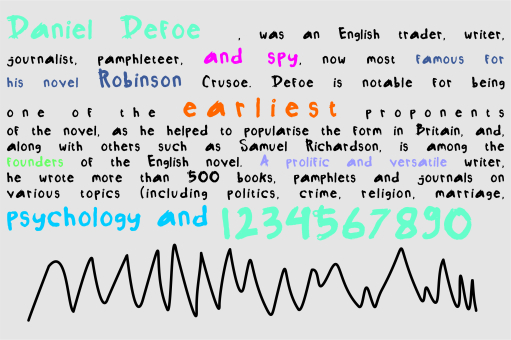 Daniel Defoe , was an English trader, writer,
journalist, pamphleteer, and spy, now most famous for
his novel Robinson Crusoe. Defoe is notable for being
one of the earliest proponents
of the novel, as he helped to popularise the form in Britain, and,
along with others such as Samuel Richardson, is among the
founders of the English novel. A prolific and versatile writer,
he wrote more than 500 books, pamphlets and journals on
various topics (including politics, crime, religion, marriage,
psychology and 1234567890